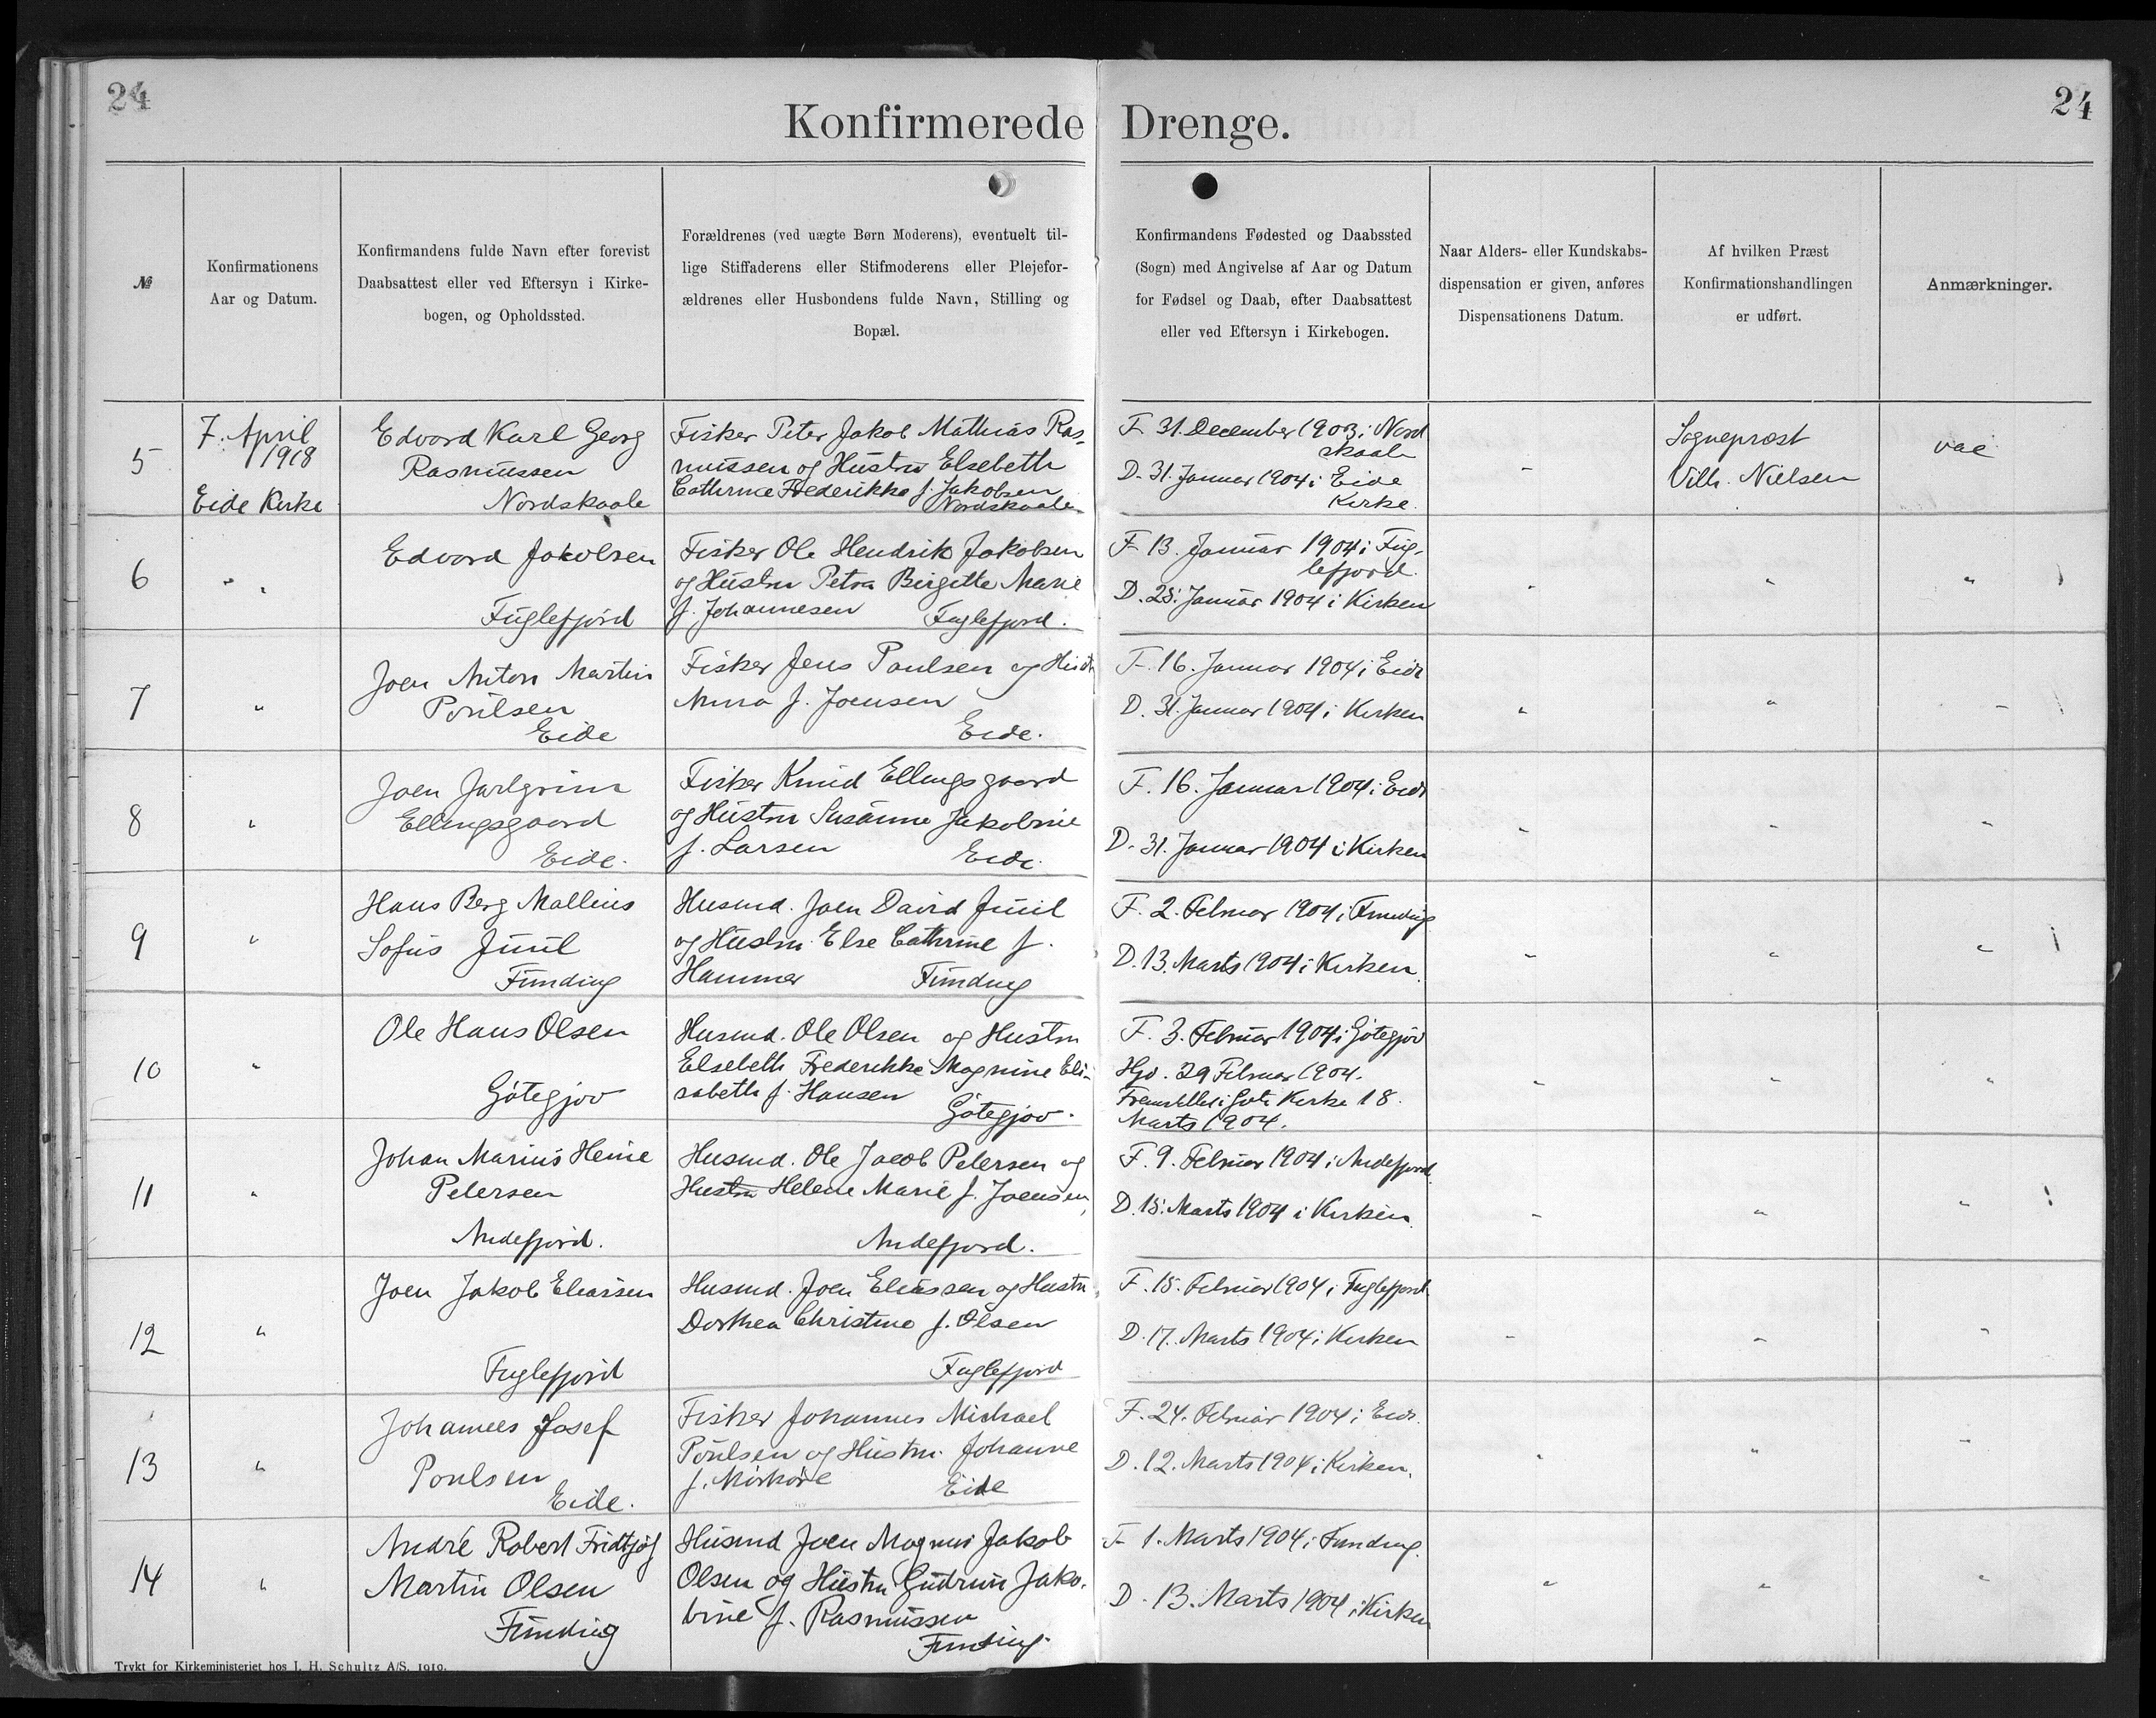 24
24
Konfirmerede Drenge.
№
Konfirmationens
Aar og Datum.
Konfirmandens fulde Navn efter forevist
Daabsattest eller ved Eftersyn i Kirke-
bogen, og Opholdssted.
Forældrenes (ved uægte Børn Moderens), eventuelt til-
lige Stiffaderens eller Stifmoderens eller Plejefor-
ældrenes eller Husbondens fulde Navn, Stilling og
Bopæl.
Konfirmandens Fødested og Daabssted
(Sogn) med Angivelse af Aar og Datum
for Fødsel og Daab, efter Daabsattest
eller ved Eftersyn i Kirkebogen.
Naar Alders- eller Kundskabs-
dispensation er given, anføres
Dispensationens Datum.
Af hvilken Præst
Konfirmationshandlingen
er udført.
Anmærkninger.
5
7. April
1918
Eide Kirke
Edvard Karl Georg
Rasmussen
Nordskaale
Fisker Peter Jakob Mathias Ras-
mussen og Hustru Elsebeth
Cathrine Frederikke f. Jakobsen
Nordskaale
F. 31. December 1903 i Nord
skaale
D. 31. Januar 1904 i Eide
Kirke.
-
Sognepræst
Vilh. Nielsen
vac
6
" "
Edvard Jakobsen
Fuglefjord
Fisker Ole Hendrik Jakobsen
og Hustru Petra Birgitte Marie
f. Johannesen Fuglefjord.
F. 13. Januar 1904 i Fug-
lefjord.
D. 28. Januar 1904 i Kirken
"
"
"
7
"
Joen Anton Martin
Poulsen
Eide
Fisker Jens Paulsen og Hustr
Anna f. Joensen
Eide.
F. 16. Januar 1904 i Eide
D. 31. Januar 1904 i Kirken
"
"
"
8
"
Joen Jarlgrim
Ellingsgaard
Eide.
Fisker Knud Ellingsgaard
og Hustru Susanne Jakobine
f. Larsen Eide.
F. 16. Januar 1904 i Eide
D. 31. Januar 1904 i Kirken
"
"
"
9
"
Hans Berg Mallius
Sofus Juul
Funding
Husmd. Joen David Juul
og Hustru Else Cathrine f.
Hammer Funding
F. 2. Februar 1904 i Funding
D. 13. Marts 1904 i Kirken
"
"
"
10
"
Ole Hans Olsen
Götegjov
Husmd. Ole Olsen og Hustru
Elsebeth Frederikke Magnine Eli-
sabeth f. Hansen
Götegjov.
F. 3. Februar 1904 i Götegjov
Hjd. 29 Februar 1904.
Fremstillet i Gøte Kirke 18.
Marts 1904.
"
"
"
11
"
Johan Marius Heine
Petersen
Andefjord.
Husmd. Ole Jacob Petersen og
Hustru Helene Marie f. Joensen,
Andefjord.
F. 9. Februar 1904 i Andefjord.
D. 18. Marts 1904 i Kirken.
"
"
"
12
"
Joen Jakob Eliassen
Fuglefjord
Husmd. Joen Eliassen og Hustru
Dorthea Christine f. Olsen
Fuglefjord
F. 18. Februar 1904 i Fuglefjord
D. 17. Marts 1904 i Kirken
"
"
"
13
"
Johannes Josef
Poulsen
Eide.
Fisker Johannes Michael
Poulsen og Hustru Johanne
f. Mörköre Eide
F. 24. Februar 1904 i Eide.
D. 12. Marts 1904 i Kirken.
"
"
"
14
"
André Robert Fridtjof
Martin Olsen
Funding
Husmd Joen Magnus Jakob
Olsen og Hustru Gudrun Jako-
bine f. Rasmussen
Funding.
F. 1. Marts 1904 i Funding.
D. 13. Marts 1904 i Kirken
"
"
"
Trykt for Kirkeministeriet hos J. H. Schultz A/S. 1919.